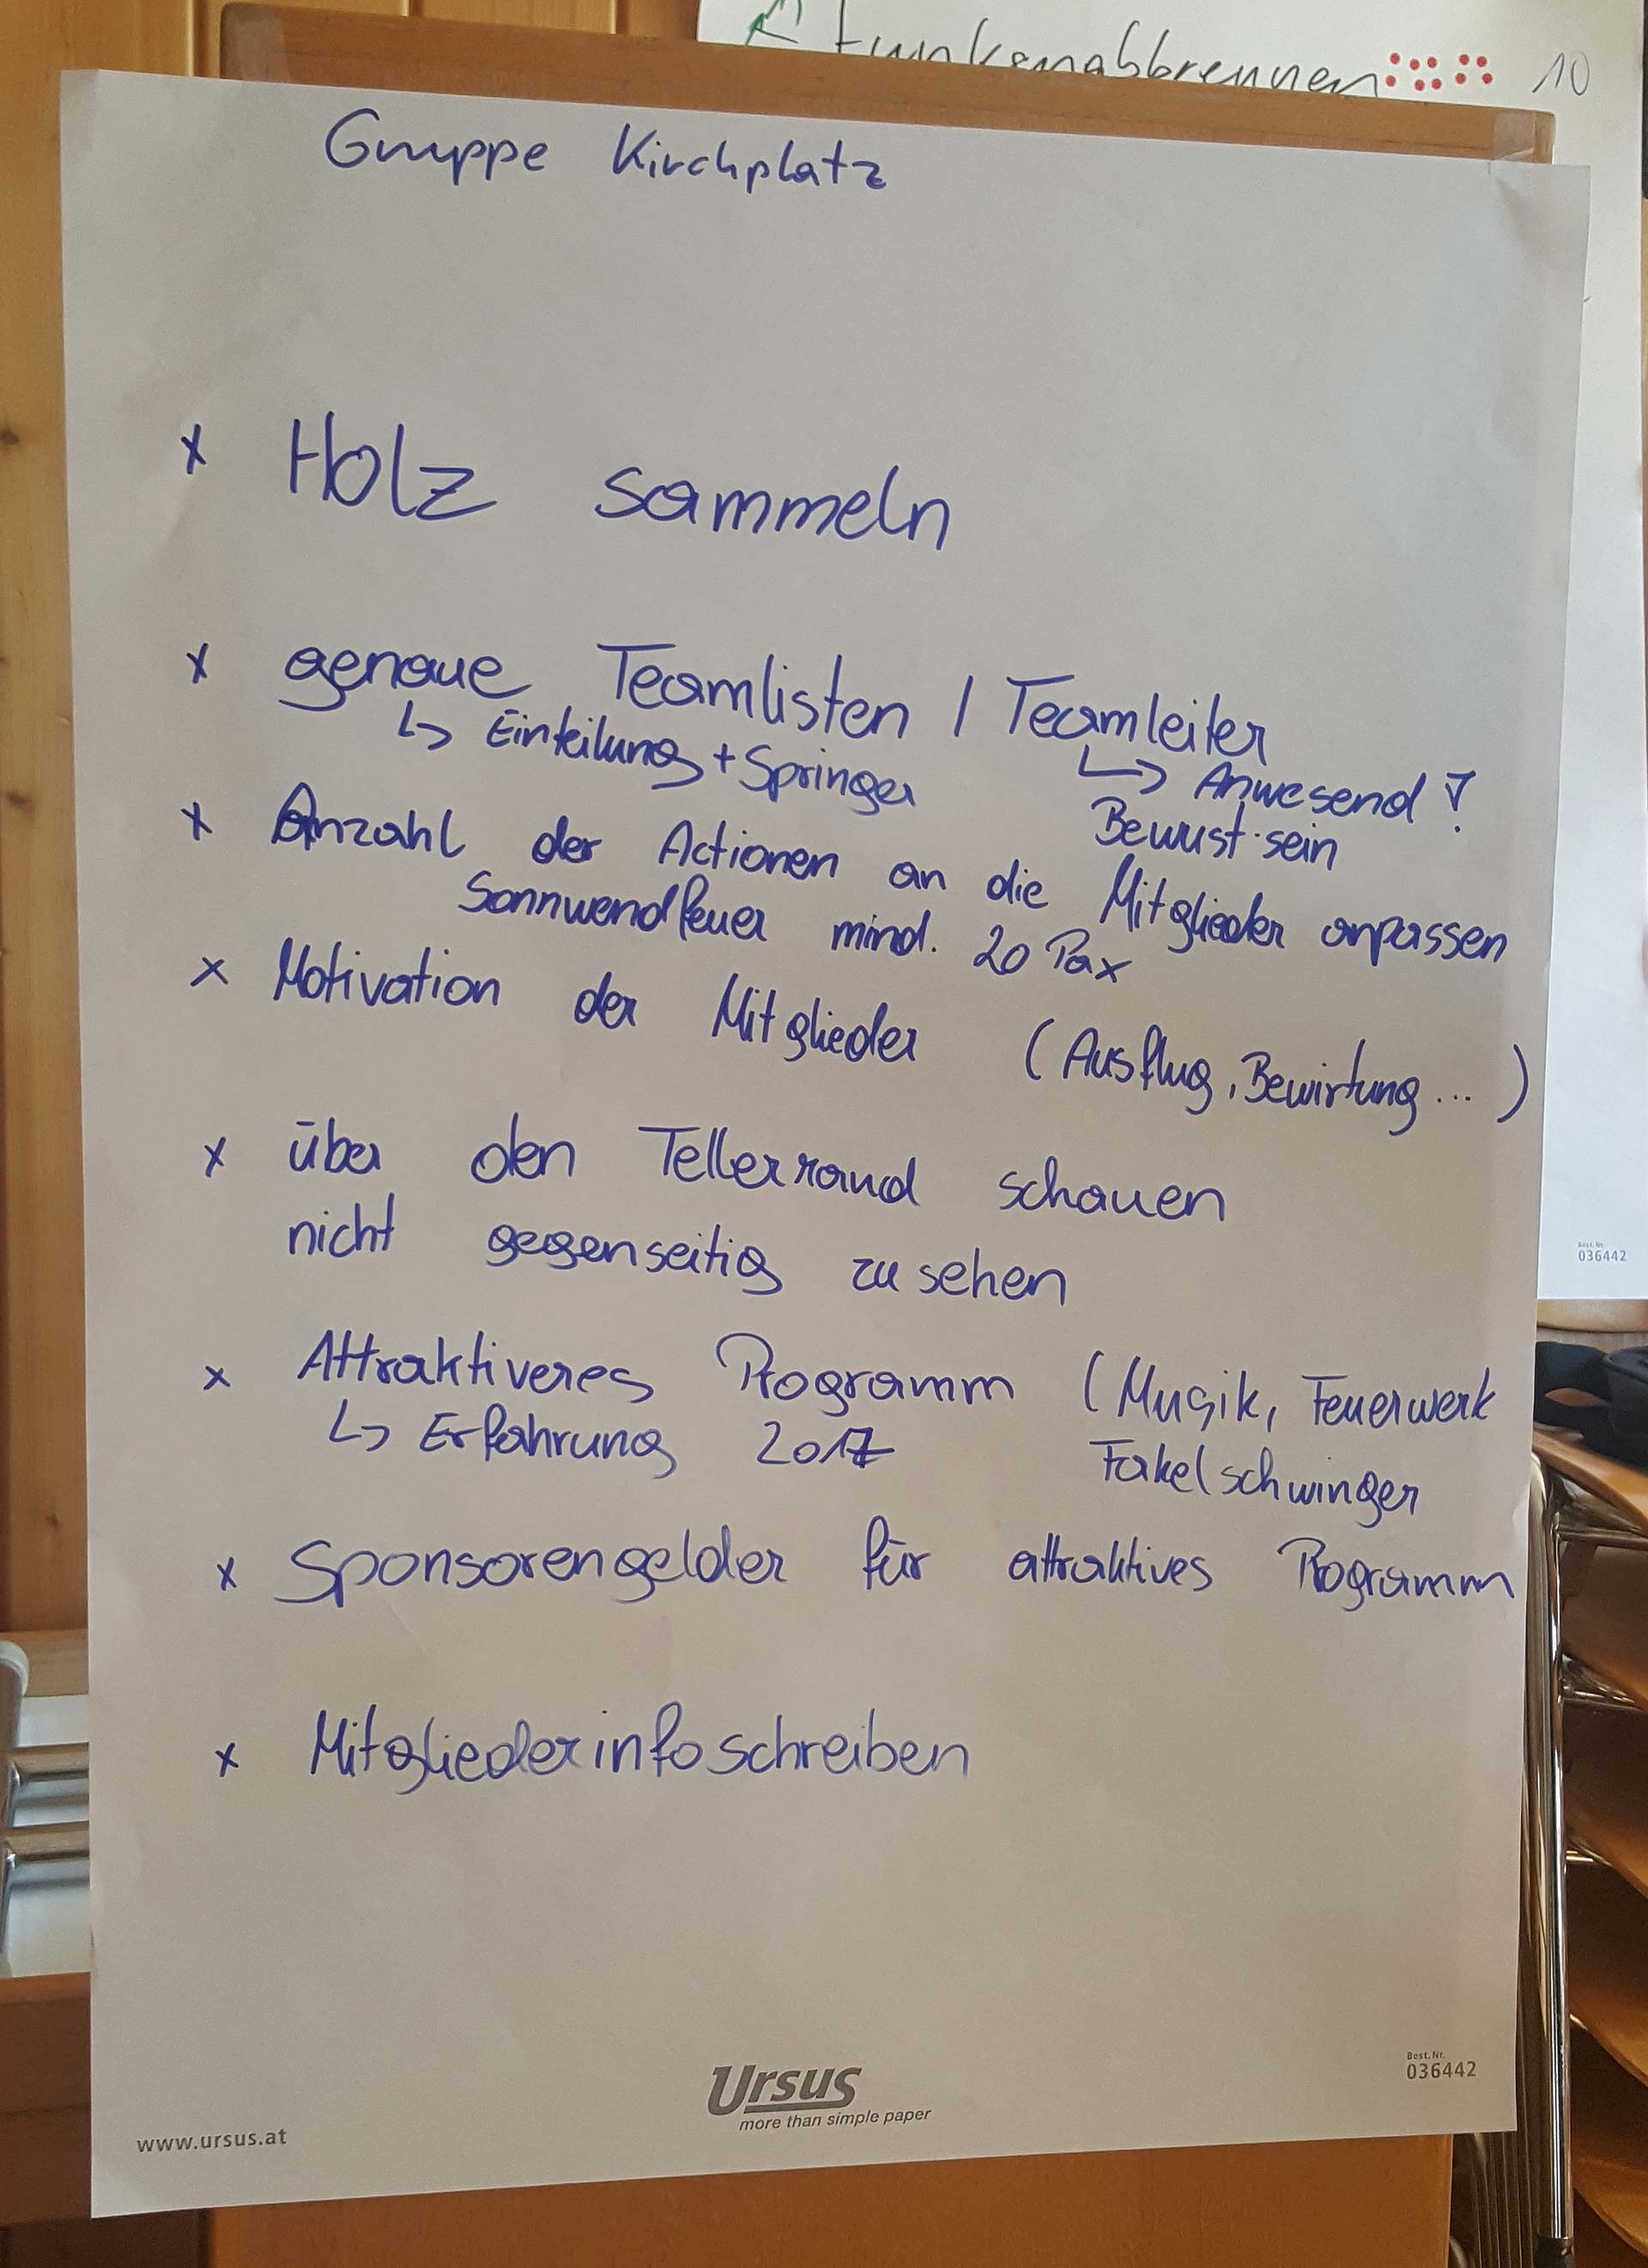 Funkenabbrennen 10
Gruppe Kirchplatz
x Holz sammeln
x genaue Teamlisten / Teamleiter
↳ Einteilung + Springer
↳ Anwesend !
Bewust-sein
x Anzahl der Actionen an die Mitglieder anpassen
Sonnwendfeuer mind. 20 Pax
x Motivation der Mitglieder (Ausflug, Bewirtung ... )
x über den Tellerrand schauen
nicht gegenseitig zu sehen
x Attraktiveres Programm (Musik, Feuerwerk
↳ Erfahrung 2017
Fakelschwinger
x Sponsorengelder für attraktives Programm
x Mitgliederinfoschreiben
Best. Nr.
036442
Ursus
more than simple paper
www.ursus.at
Best. Nr.
036442